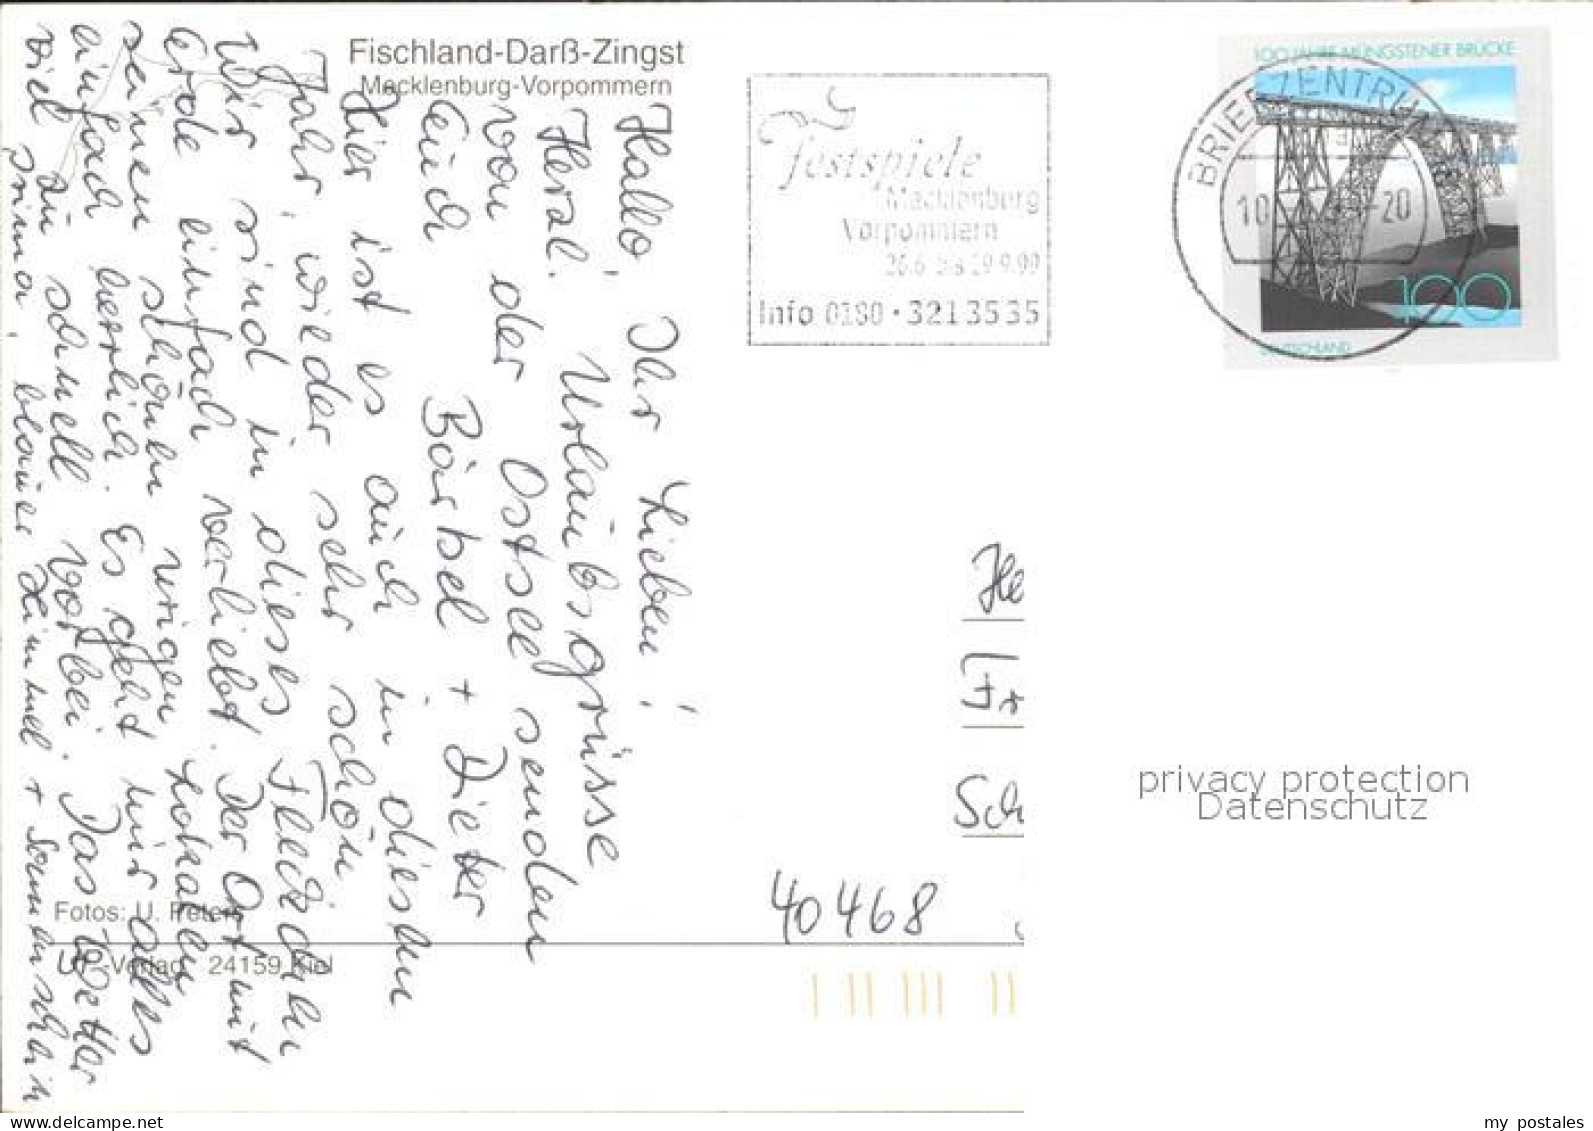 Fischland-Darß-Zingst
Mecklenburg-Vorpommern
Hallo, Ihr Lieben!
Herzl. Urlaubsgrüsse
von der Ostsee senden
Euch Bärbel + Dieter
Hier ist es auch in diesem
Jahr, wieder sehr schön
Wir sind in dieses Fleckchen
Erde einfach verliebt. Der Ort mit
seinen schönen urigen Lokalen
einfach herrlich. Es geht nur alles
viel zu schnell vorbei. Das Wetter
prima, blauer Himmel + Sonnenschein
Fotos: U. Peters
-Verlag 24159 Kiel
Festspiele
Mecklenburg
Vorpommern
26.6. bis 19.9.99
Info 0180·3213535
100 JAHRE MÜNGSTENER BRÜCKE
BRIEFZENTRUM
10
-20
100
DEUTSCHLAND
He
Sch
40468
privacy protection
Datenschutz
my postales